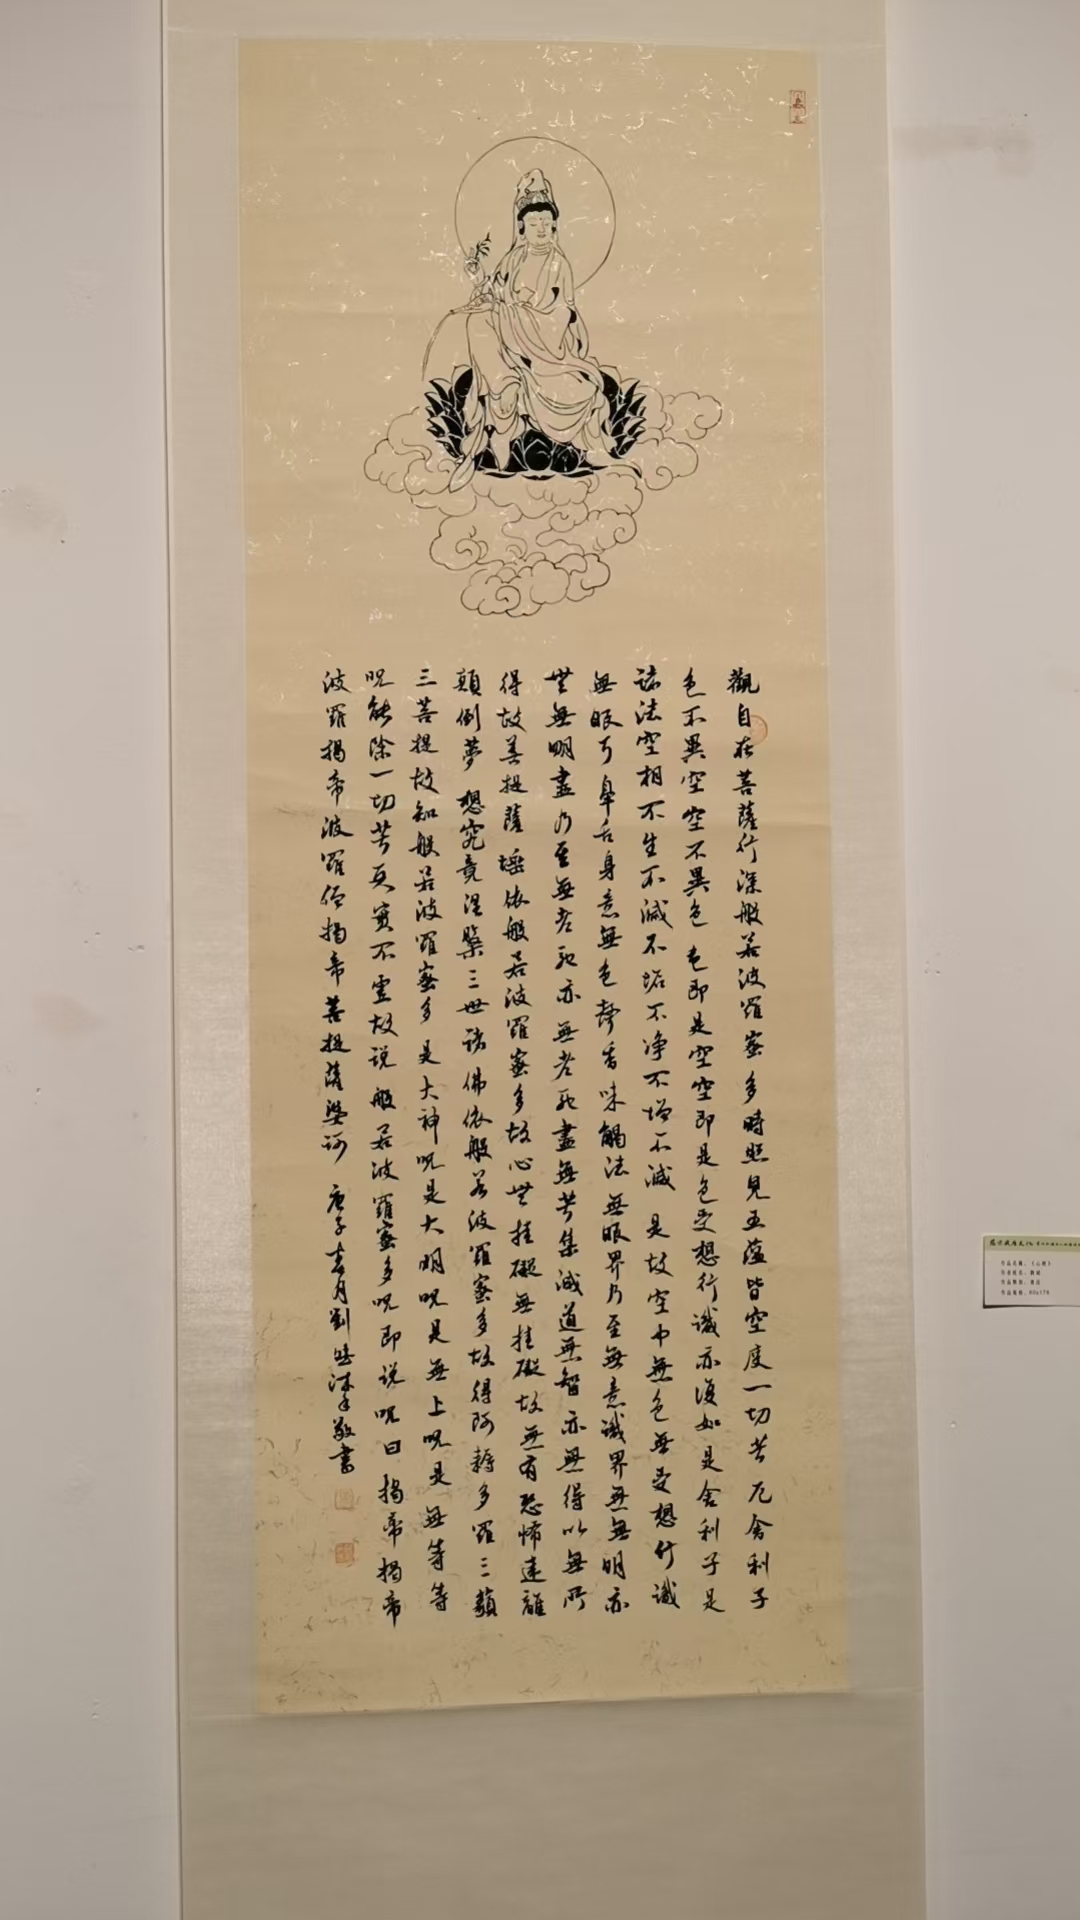 觀自在菩薩行深般若波羅蜜多時照見五蘊皆空度一切苦厄舍利子
色不異空空不異色色即是空空即是色受想行識亦復如是舍利子是
諸法空相不生不滅不垢不净不增不減是故空中無色無受想行識
無眼耳鼻舌身意無色聲香味觸法無眼界乃至無意識界無無明亦
無無明盡乃至無老死亦無老死盡無苦集滅道無智亦無得以無所
得故菩提薩埵依般若波羅蜜多故心無挂礙無挂礙故無有恐怖遠離
顛倒夢想究竟涅槃三世諸佛依般若波羅蜜多故得阿耨多羅三藐
三菩提故知般若波羅蜜多是大神呪是大明呪是無上呪是無等等
呪能除一切苦真實不虛故説般若波羅蜜多呪即説呪曰揭帝揭帝
波羅揭帝波羅僧揭帝菩提薩婆訶 庚子春月劉 敬書
作品名稱：《心經》